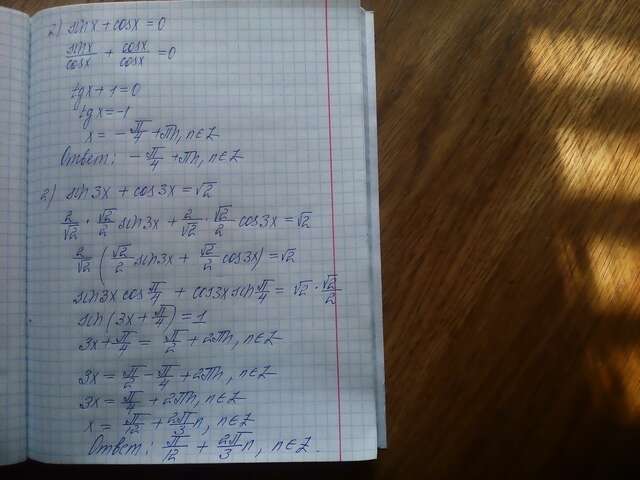 2) sinx + cosx = 0
sinx/cosx + cosx/cosx = 0
tgx + 1 = 0
tgx = -1
x = -π/4 + πn, n∈Z
Ответ: -π/4 + πn, n∈Z
2) sin3x + cos3x = √2
2/√2 · √2/2 sin3x + 2/√2 · √2/2 cos3x = √2
2/√2 (√2/2 sin3x + √2/2 cos3x) = √2
sin3x cos π/4 + cos3x sin π/4 = √2 · √2/2
sin(3x + π/4) = 1
3x + π/4 = π/2 + 2πn, n∈Z
3x = π/2 - π/4 + 2πn, n∈Z
3x = π/4 + 2πn, n∈Z
x = π/12 + 2π/3 n, n∈Z
Ответ: π/12 + 2π/3 n, n∈Z.